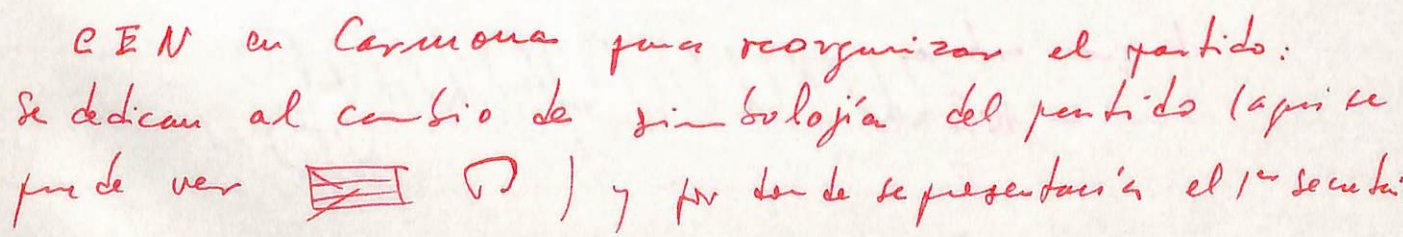 CEN en Carmona para reorganizar el partido:
se dedican al cambio de simbología del partido (aquí se
puede ver ) y por donde se presentaría el 1er secreta